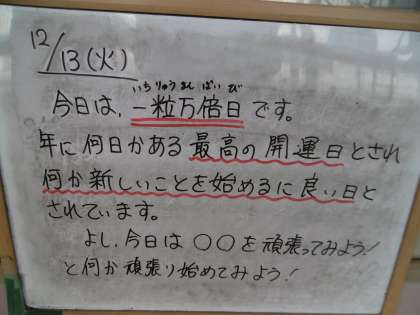 12/13(火)
いちりゅうまんばいび
今日は、一粒万倍日です。
年に何日かある最高の開運日とされ
何か新しいことを始めるに良い日と
されています。
よし、今日は〇〇を頑張ってみよう!
と何か頑張り始めてみよう!